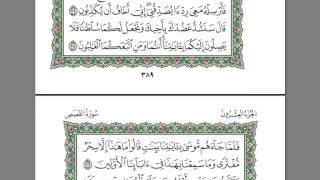 فَأَرْسِلْهُ مَعِىَ رِدْءًا يُصَدِّقُنِىٓ إِنِّىٓ أَخَافُ أَن يُكَذِّبُونِ
قَالَ سَنَشُدُّ عَضُدَكَ بِأَخِيكَ وَنَجْعَلُ لَكُمَا سُلْطَٰنًا فَلَا
يَصِلُونَ إِلَيْكُمَا بِـَٔايَٰتِنَآ أَنتُمَا وَمَنِ ٱتَّبَعَكُمَا ٱلْغَٰلِبُونَ
٣٨٩
الجزء العشرون سورة القصص
فَلَمَّا جَآءَهُم مُّوسَىٰ بِـَٔايَٰتِنَا بَيِّنَٰتٍ قَالُوا۟ مَا هَٰذَآ إِلَّا سِحْرٌ
مُّفْتَرًى وَمَا سَمِعْنَا بِهَٰذَا فِىٓ ءَابَآئِنَا ٱلْأَوَّلِينَ